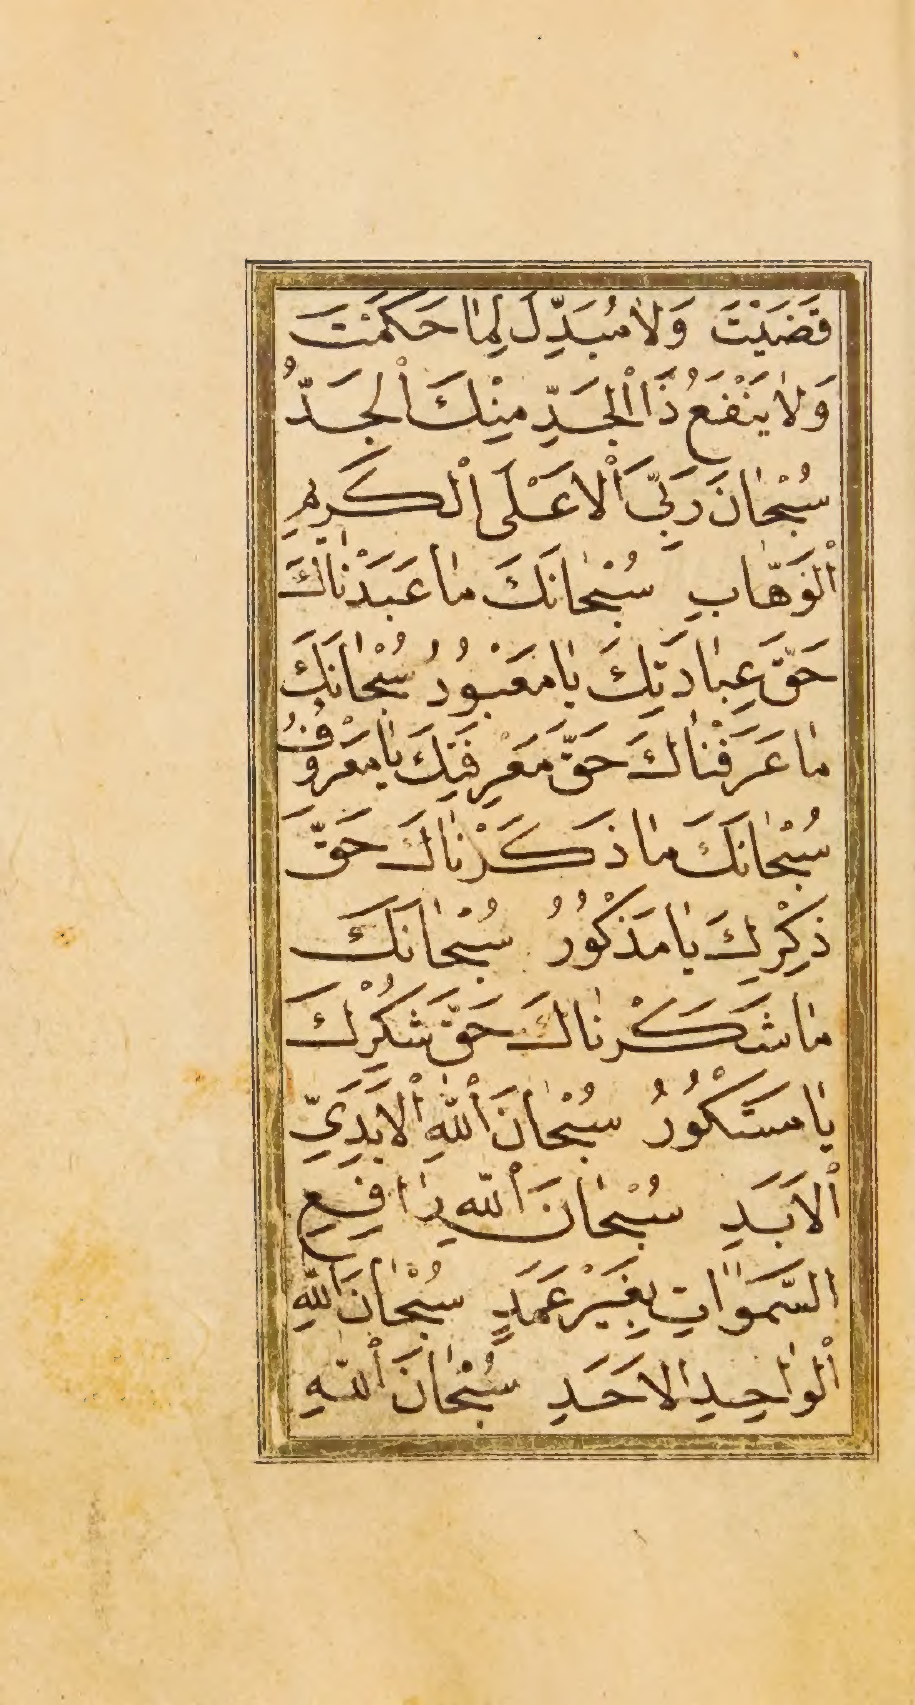 قَضَيْتَ وَلَا مُبَدِّلَ لِمَا حَكَمْتَ
وَلَا يَنْفَعُ ذَا الْجَدِّ مِنْكَ الْجَدُّ
سُبْحَانَ رَبِّيَ الْاَعْلَى الْكَرِيمِ
الْوَهَّابِ سُبْحَانَكَ مَا عَبَدْنَاكَ
حَقَّ عِبَادَتِكَ يَا مَعْبُودُ سُبْحَانَكَ
مَا عَرَفْنَاكَ حَقَّ مَعْرِفَتِكَ يَا مَعْرُوفُ
سُبْحَانَكَ مَا ذَكَرْنَاكَ حَقَّ
ذِكْرِكَ يَا مَذْكُورُ سُبْحَانَكَ
مَا شَكَرْنَاكَ حَقَّ شُكْرِكَ
يَا مَشْكُورُ سُبْحَانَ اللهِ الْاَبَدِيِّ
الْاَبَدِ سُبْحَانَ اللهِ رَافِعِ
السَّمَوَاتِ بِغَيْرِ عَمَدٍ سُبْحَانَ اللهِ
الْوَاحِدِ الْاَحَدِ سُبْحَانَ اللهِ